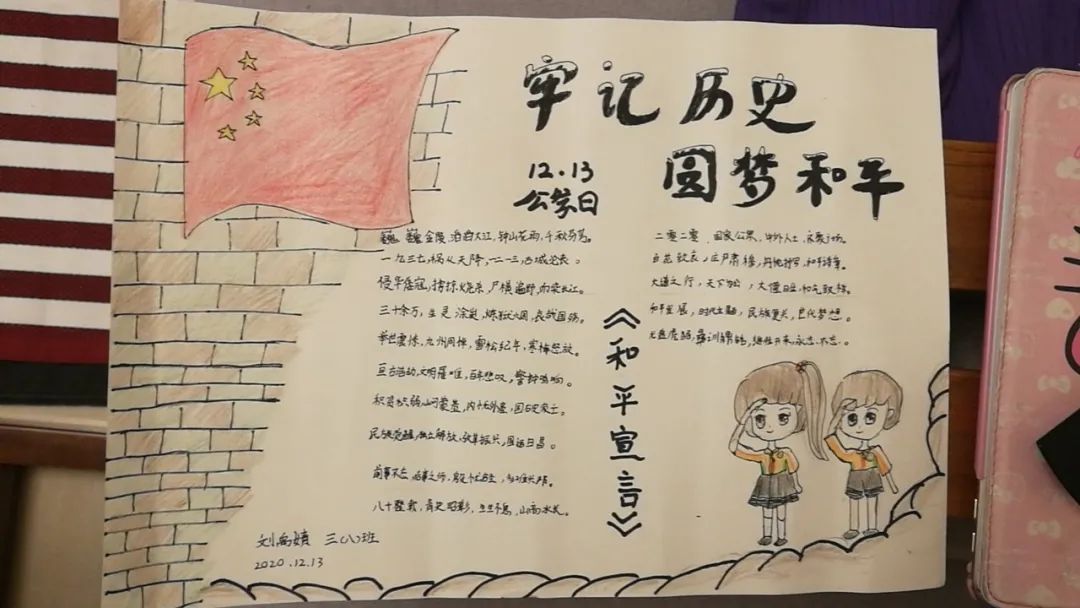 牢记历史
圆梦和平
12.13
公祭日
巍巍金陵,滔滔大江,钟山花雨,千秋芬芳。
一九三七,祸从天降,一二一三,古城沦丧。
侵华倭寇,掳掠烧杀,尸横遍野,血染长江。
三十余万,生灵涂炭,炼狱六周,哀哉国殇。
举世震惊,九州同悼,雪松纪年,寒梅怒放。
亘古浩劫,文明罹难,百年悲叹,警钟鸣响。
积贫积弱,山河蒙羞,内忧外患,国破家亡。
民族觉醒,独立解放,改革振兴,国运日昌。
前事不忘,后事之师,殷忧启圣,多难兴邦。
八十载矣,青史昭彰,生生不息,山高水长。
二零二零,国家公祭,中外人士,齐聚广场。
白花致哀,庄严肃穆,丹忱抒写,和平诗章。
大道之行,天下为公,大德曰生,和气致祥。
和平发展,时代主题,民族复兴,世代梦想。
龙盘虎踞,彝训鼎铭,继往开来,永志不忘。
《和平宣言》
三(八)班
2020.12.13